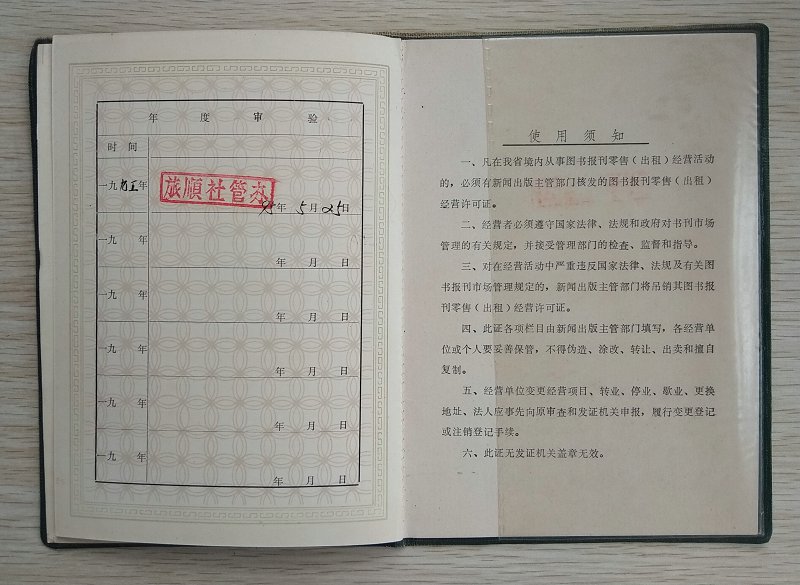 年 度 审 验
时 间
一九九五年
旅順社管办
95年 5月25日
一九 年
年 月 日
一九 年
年 月 日
一九 年
年 月 日
一九 年
年 月 日
一九 年
年 月 日
使 用 须 知
一、凡在我省境内从事图书报刊零售（出租）经营活动
的，必须有新闻出版主管部门核发的图书报刊零售（出租）
经营许可证。
二、经营者必须遵守国家法律、法规和政府对书刊市场
管理的有关规定，并接受管理部门的检查、监督和指导。
三、对在经营活动中严重违反国家法律、法规及有关图
书报刊市场管理规定的，新闻出版主管部门将吊销其图书报
刊零售（出租）经营许可证。
四、此证各项栏目由新闻出版主管部门填写，各经营单
位或个人要妥善保管，不得伪造、涂改、转让、出卖和擅自
复制。
五、经营单位变更经营项目、转业、停业、歇业、更换
地址、法人应事先向原审查和发证机关申报，履行变更登记
或注销登记手续。
六、此证无发证机关盖章无效。